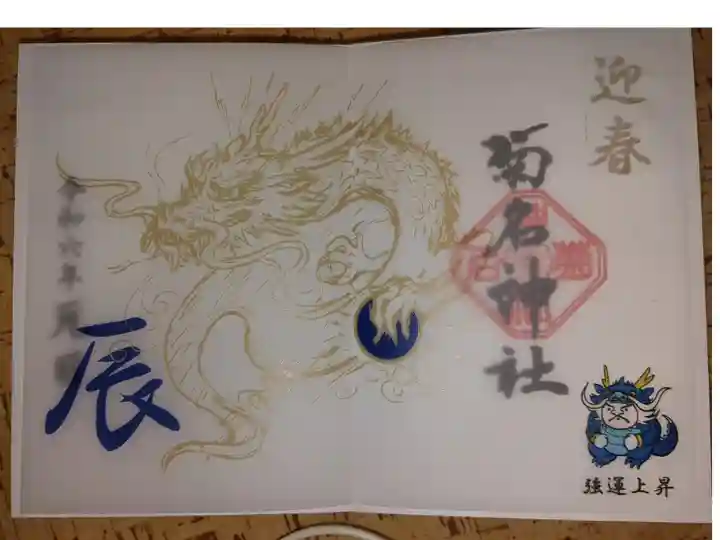 迎春
菊名神社
令和六年 元旦
辰
強運上昇